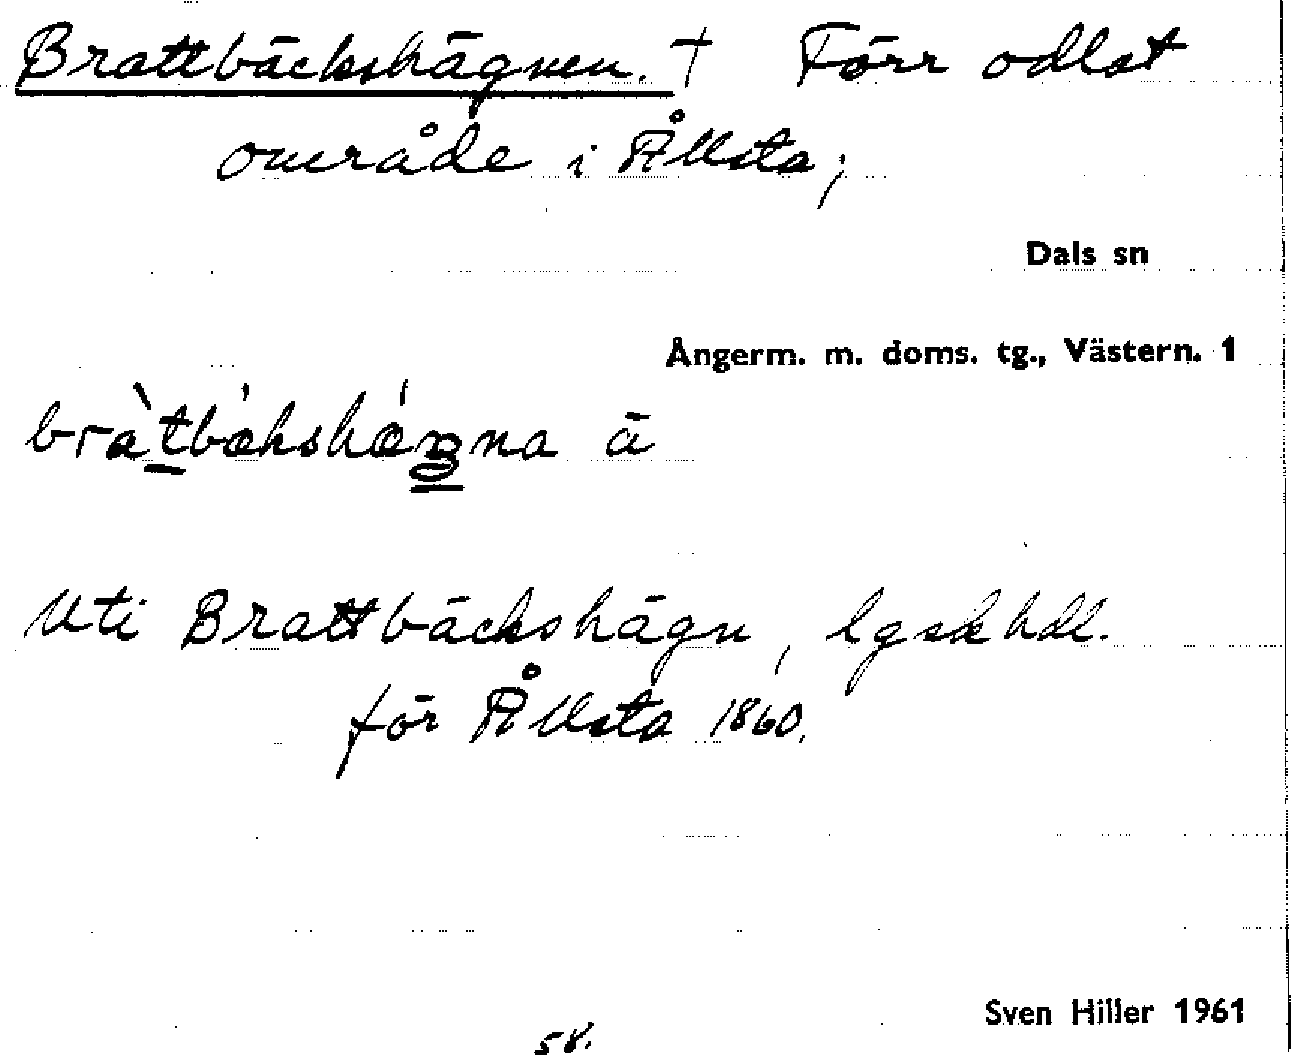 Brattbäckshägnen. † Förr odlat
område i Ållsta,
Dals sn
Ångerm. m. doms. tg., Västern. 1
bràtbækshæŋna ä
Uti Brattbäckshägn, lgskhdl.
för Ållsta 1860.
Sven Hiller 1961
58.